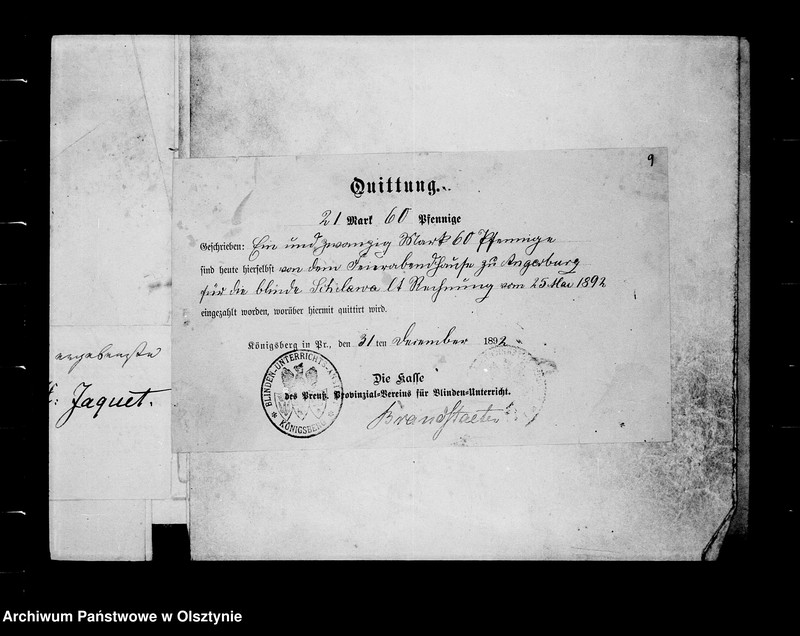 9
Quittung.
21 Mark 60 Pfennige
Geschrieben: Ein und zwanzig Mark 60 Pfennige
sind heute hierselbst von dem Feierabendhause zu Angerburg
für die blinde lt Rechnung vom 25. Mai 1892
eingezahlt worden, worüber hiermit quittirt wird.
Königsberg in Pr., den 31ten Dezember 1892.
Die Kasse
des Preuß. Provinzial-Vereins für Blinden-Unterricht.
BLINDEN-UNTERRICHTS-ANST.
KÖNIGSBERG
Brandstaeter
ergebenste
Jaquet.
Archiwum Państwowe w Olsztynie